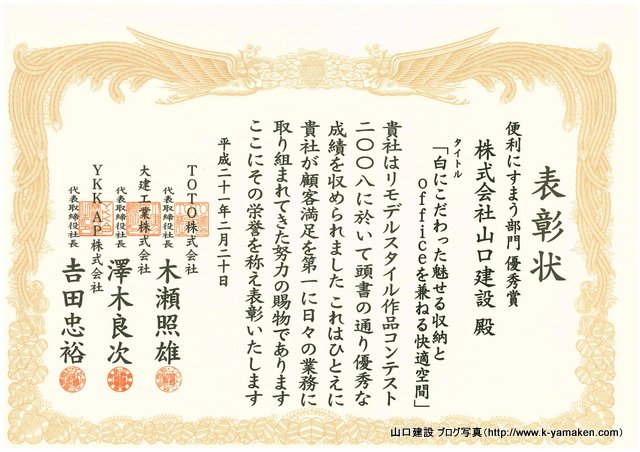 表彰状
便利にすまう部門 優秀賞
株式会社山口建設 殿
タイトル
「白にこだわった魅せる収納と
officeを兼ねる快適空間」
貴社はリモデルスタイル作品コンテスト
二〇〇八に於いて頭書の通り優秀な
成績を収められました これはひとえに
貴社が顧客満足を第一に日々の業務に
取り組まれてきた努力の賜物であります
ここにその栄誉を称え表彰いたします
平成二十一年二月二十日
TOTO株式会社
代表取締役社長 木瀬照雄
大建工業株式会社
代表取締役社長 澤木良次
YKK AP株式会社
代表取締役社長 吉田忠裕
山口建設 ブログ写真(http://www.k-yamaken.com)